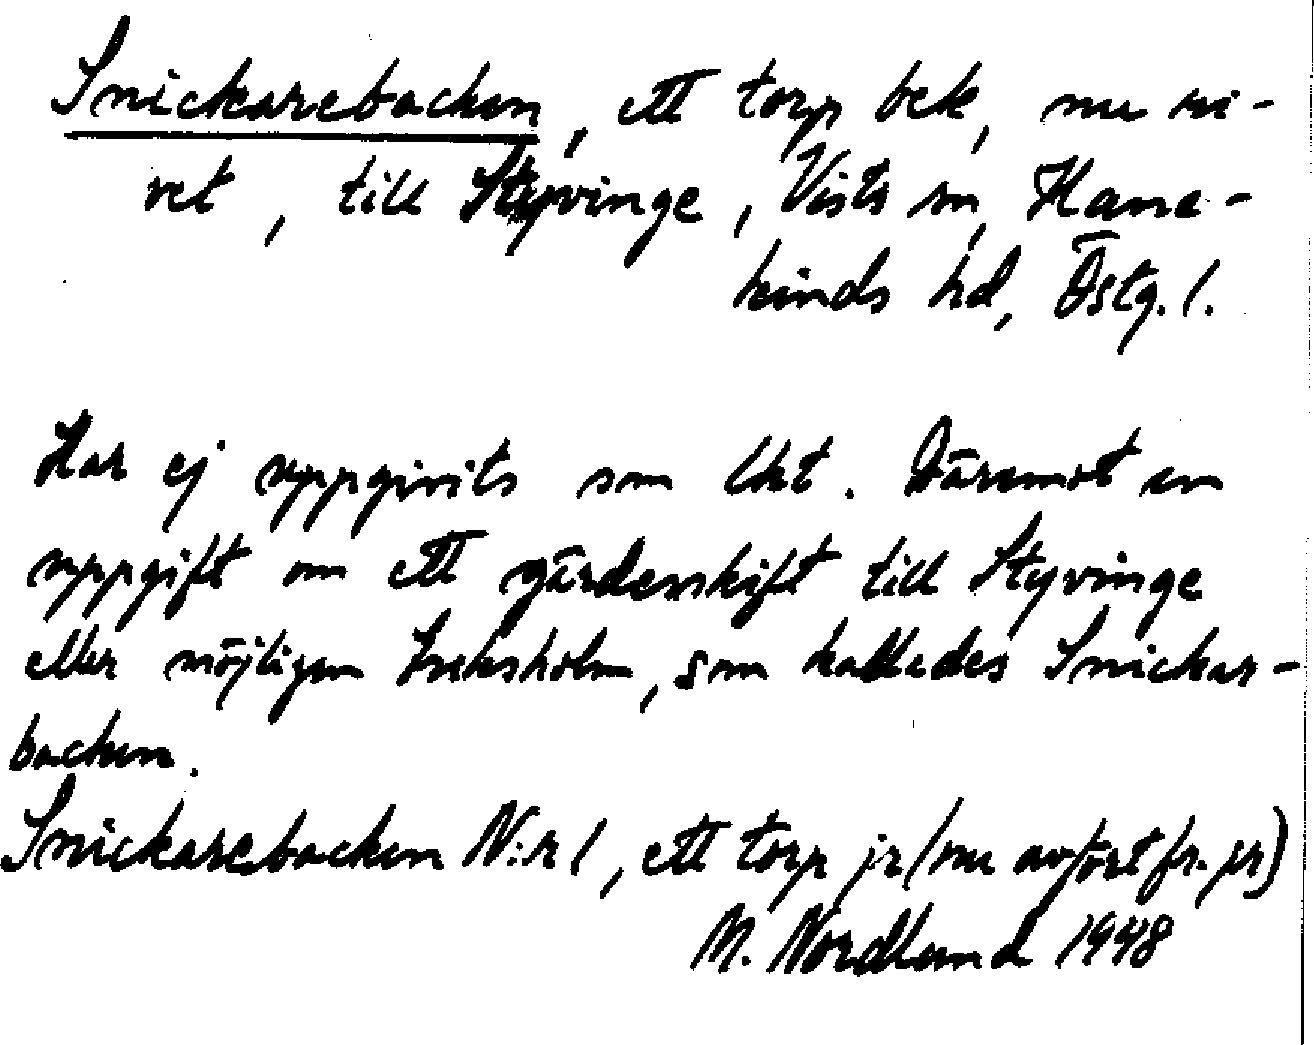 Snickarebacken, ett torp bek, nu ri-
vet, till Styvinge, Vists sn, Hane-
kinds hd, Östg. l.
Har ej uppgivits som lht. Däremot en
uppgift om ett gärdesskift till Styvinge
eller möjligen som kallades Snickar-
backen.
Snickarebacken N:r 1, ett torp jr (nu avfört fr. jr)
M. Nordlund 1948